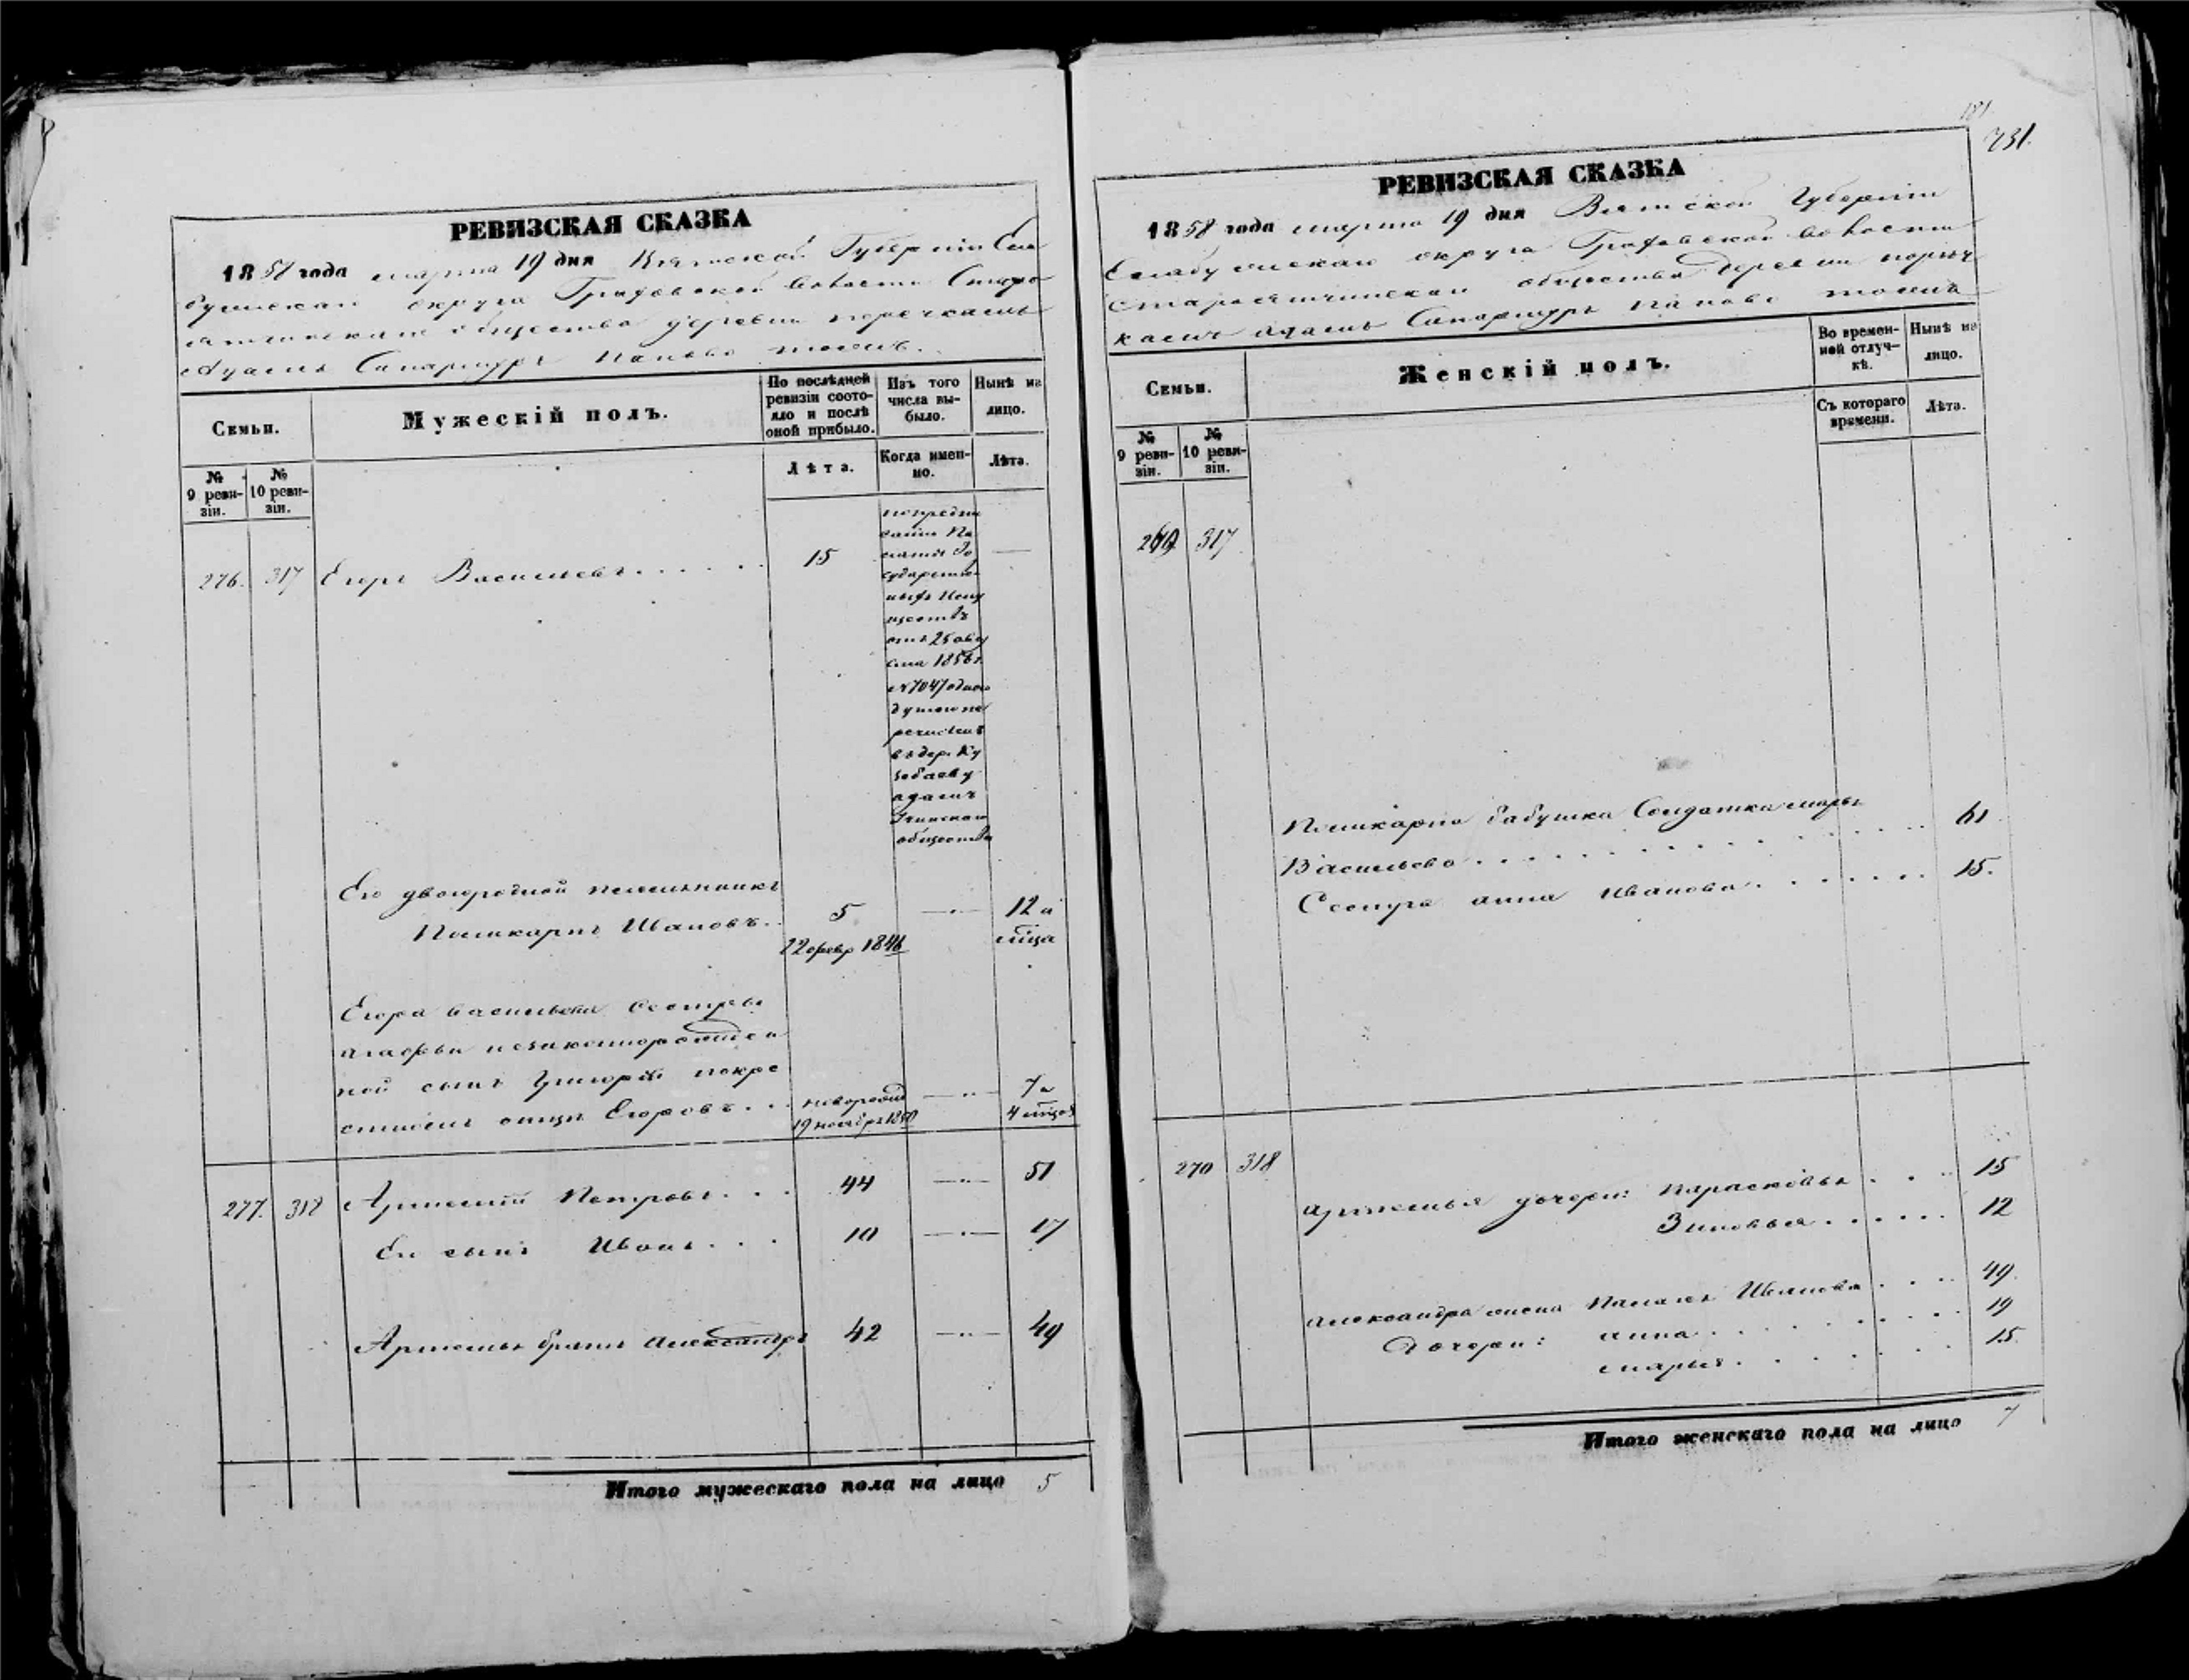 РЕВИЗСКАЯ СКАЗКА
1858 года марта 19 дня Вятской Губерніи Ела
бужскаго округа Граховской волости Старо
ятчинскаго общества деревни поречкасъ
адамъ Сапаршуръ Паново тожъ.
Семьи.
Мужескій полъ.
По послѣдней ревизіи состояло и послѣ оной прибыло.
Изъ того числа выбыло.
Нынѣ на лицо.
№ 9 ревизіи.
№ 10 ревизіи.
Лѣта.
Когда именно.
Лѣта.
276. 317 Егоръ Васильевъ . . . . . . 15
попредпи
санію Па
латы Го
сударствен
ныхъ Иму
ществъ
отъ 25 авгу
ста 1856 г.
№ 7047 одною
душою пе
речисленъ
въ дер. Ку
зебаеву
адамъ
общества
Его двоюродной племянникъ
Поликарпъ Ивановъ . . 5 — 12 и
22 февр 1846 мѣца
Егора васильева сестры
агафьи незаконнорожден
ной сынъ Григорій покре
стному отцу Егоровъ . . . новорожд — 7 и
19 ноября 1850 4 мѣца
277. 318 Артемій Петровъ . . . 44 — 51
Ег сынъ Иванъ . . . 10 — 17
Артемья братъ александръ 42 — 49
Итого мужескаго пола на лицо 5
181
731.
РЕВИЗСКАЯ СКАЗКА
1858 года марта 19 дня Вятской Губерніи
Елабужскаго округа Граховской волости
староятчинскаго общества деревни пореч
касъ адамъ Сапаршуръ паново тожъ
Семьи.
Женскій полъ.
Во временной отлучкѣ.
Нынѣ на лицо.
№ 9 ревизіи.
№ 10 ревизіи.
Съ котораго времени.
Лѣта.
269 317
Поликарпа бабушка Солдатка марья
Васильева . . . . . . . . . . 61
Сестра анна Иванова . . . . . . . 15.
270 318
артемья дочери: парасковья . . . 15
Зиновья . . . . . 12
александра жена Иванова . . . . 49.
Дочери: анна . . . . . . . . 19
марья . . . . . . . 15.
Итого женскаго пола на лицо 7